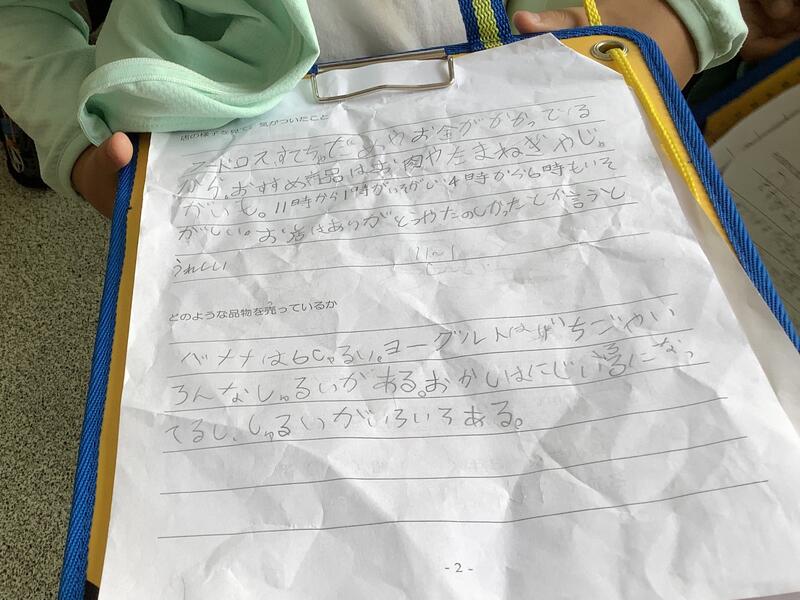 店の様子を見て、気がついたこと
フードロス、すてちゃだめやお金がかかっている
から。おすすめ商品はお肉やたまねぎやじゃ
がいも。11時から1時がいそがしい4時から6時もいそ
がしい。お店はありがとうやたのしかったとか言うと
うれしい
11~1
どのような品物を売っているか
バナナは6しゅるい。ヨーグルトはいちごやい
ろんなしゅるいがある。おかしはにじい場になっ
てるし、しゅるいがいろいろある。
- 2 -